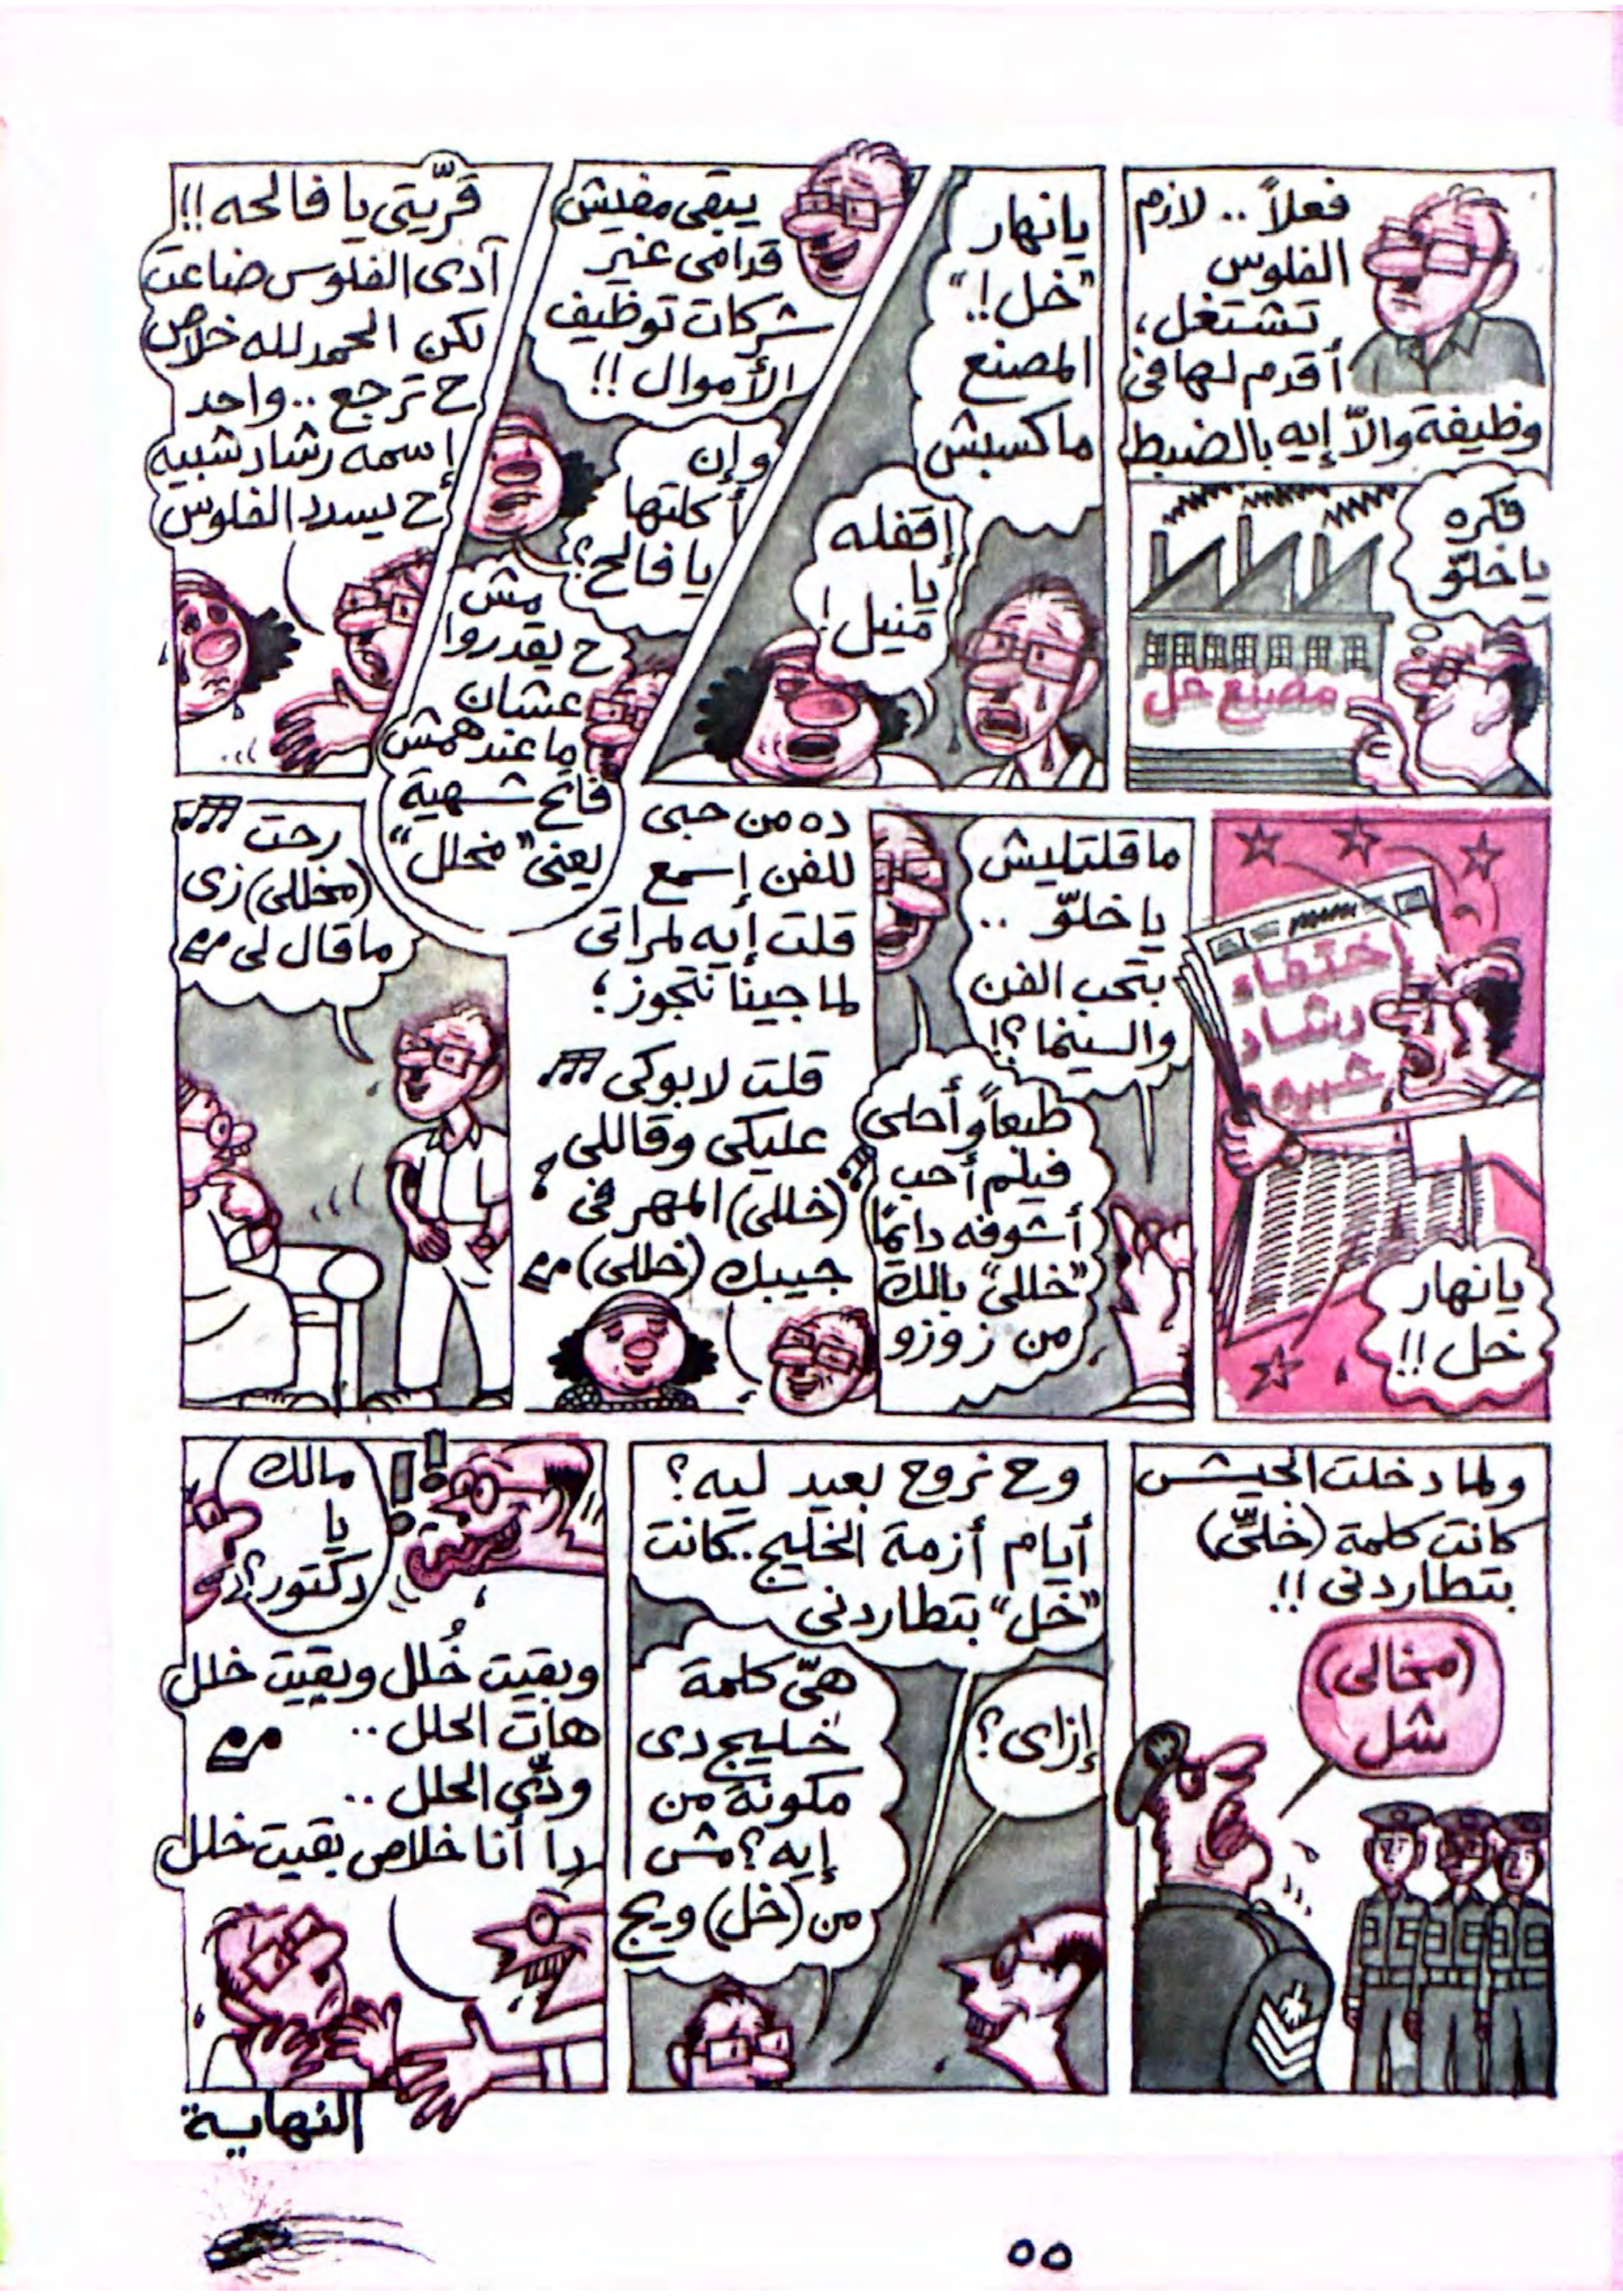 فعلاً .. لازم
الفلوس
تشتغل،
أقدم لها فى
وظيفة والاّ إيه بالضبط
فكره
يا خلّو
مصنع خل
يانهار
"خل!"
المصنع
ماكسبش
إقفله
يا
منيل!
يبقى مفيش
قدامى غير
شركات توظيف
الأموال !!
وإن
أكلتها
يا فالح؟
مش
ح يقدروا
عشان
ما عندهمش
فاتح شهية
يعنى "مخلل"
قرّيتى يا فالحه !!
آدى الفلوس ضاعت
لكن الحمد لله خلاص
ح ترجع .. واحد
إسمه رشاد شبيه
ح يسدد الفلوس
إختفاء
رشاد
شبيه
يانهار
خل !!
ما قلتليش
يا خلّو ..
بتحب الفن
والسينما ؟!
طبعاً وأحلى
فيلم أحب
أشوفه دايمًا
"خللى" بالك
من زوزو
ده من حبى
للفن إسمع
قلت إيه لمراتى
لما جينا نتجوز؛
قلت لابوكى
عليكى وقاللى
(خللى) المهر فى
جيبك (خللى)
رحت
(مخللى) زى
ما قال لى
ولما دخلت الجيش
كانت كلمة (خلىّ)
بتطاردنى !!
(مخالى)
شل
وح نروح بعيد ليه؟
أيام أزمة الخليج .. كانت
"خل" بتطاردنى
إزاى؟
هىّ كلمة
خليج دى
مكونة من
إيه؟ مش
من (خل) ويج
مالك
يا
دكتور؟
!!
وبقيت خُلل وبقيت خلل
هات الحلل ..
ودّى الحلل ..
دا أنا خلاص بقيت خلل
النهاية
٥٥